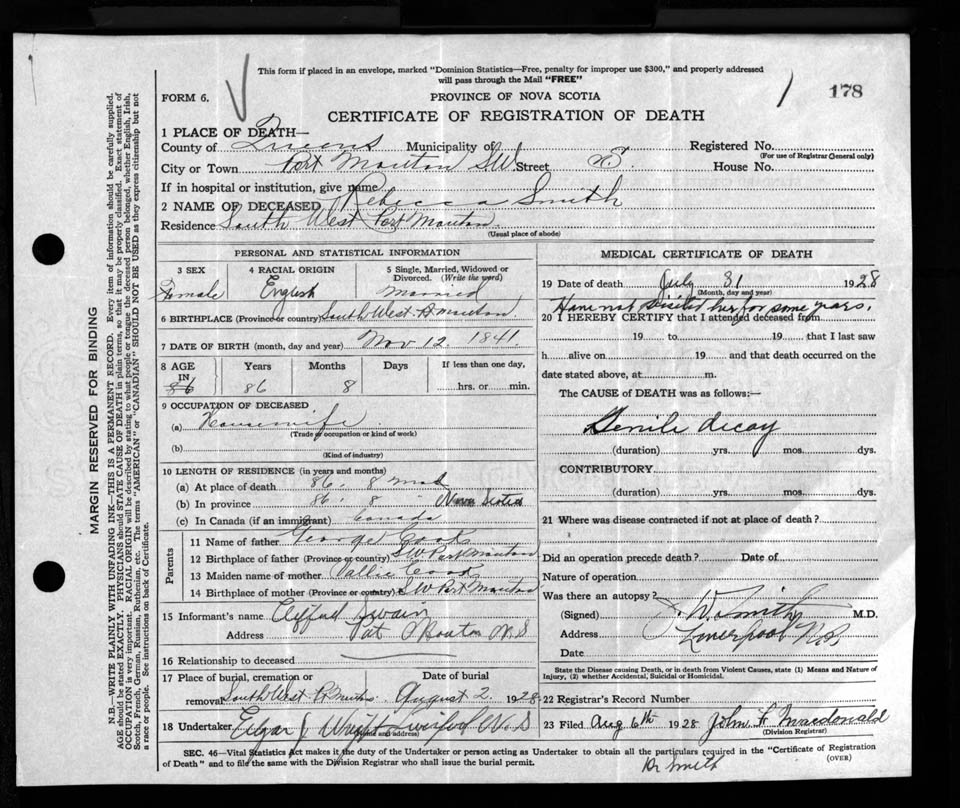 This form if placed in an envelope, marked "Dominion Statistics—Free, penalty for improper use $300," and properly addressed
will pass through the Mail "FREE"
FORM 6.
PROVINCE OF NOVA SCOTIA
178
CERTIFICATE OF REGISTRATION OF DEATH
1 PLACE OF DEATH—
County of Queens Municipality of Registered No.
(For use of Registrar General only)
City or Town Port Mouton S.W. Street E. House No.
If in hospital or institution, give name
2 NAME OF DECEASED Rebecca Smith
Residence South West Port Mouton
(Usual place of abode)
PERSONAL AND STATISTICAL INFORMATION
3 SEX 4 RACIAL ORIGIN 5 Single, Married, Widowed or
Divorced. (Write the word)
Female English Married
6 BIRTHPLACE (Province or country) South West Pt Mouton
7 DATE OF BIRTH (month, day and year) Nov 12 1841
8 AGE Years Months Days If less than one day,
IN
86 86 8 hrs. or min.
9 OCCUPATION OF DECEASED
(a) Housewife
(Trade or occupation or kind of work)
(b)
(Kind of industry)
10 LENGTH OF RESIDENCE (in years and months)
(a) At place of death 86. 8 mos
(b) In province 86. 8 Nova Scotia
(c) In Canada (if an immigrant) Canada
Parents
11 Name of father George
12 Birthplace of father (Province or country) S.W. Port Mouton
13 Maiden name of mother
14 Birthplace of mother (Province or country) S W Port Mouton
15 Informant's name Clifford Swain
Address Pt Mouton N S
16 Relationship to deceased
17 Place of burial, cremation or Date of burial
removal South West Pt Mouton August 2 1928
18 Undertaker Edgar J Wright Liverpool N. S
(Name and address)
MEDICAL CERTIFICATE OF DEATH
19 Date of death July 31 1928
(Month, day and year)
Have not visited her for some years.
20 I HEREBY CERTIFY that I attended deceased from
19 to 19 that I last saw
h alive on 19 and that death occurred on the
date stated above, at m.
The CAUSE of DEATH was as follows:—
Senile decay
(duration) yrs. mos. dys.
CONTRIBUTORY
(duration) yrs. mos. dys.
21 Where was disease contracted if not at place of death?
Did an operation precede death? Date of
Nature of operation
Was there an autopsy?
(Signed) J. W. Smith M.D.
Address Liverpool N.S.
Date
State the Disease causing Death, or in death from Violent Causes, state (1) Means and Nature of
Injury, (2) whether Accidental, Suicidal or Homicidal.
22 Registrar's Record Number
23 Filed Aug 6th 1928 John F Macdonald
(Division Registrar)
SEC. 46—Vital Statistics Act makes it the duty of the Undertaker or person acting as Undertaker to obtain all the particulars required in the "Certificate of Registration
of Death" and to file the same with the Division Registrar who shall issue the burial permit.
(OVER)
Dr Smith
MARGIN RESERVED FOR BINDING
N.B.—WRITE PLAINLY WITH UNFADING INK—THIS IS A PERMANENT RECORD. Every item of information should be carefully supplied.
AGE should be stated EXACTLY. PHYSICIANS should STATE CAUSE OF DEATH in plain terms, so that it may be properly classified. Exact statement of
OCCUPATION is very important. RACIAL ORIGIN will be described by stating to what people or tongue the deceased person belonged, whether English, Irish,
Scotch, French, German, Russian, Ruthenian, etc. The terms "AMERICAN" or "CANADIAN" SHOULD NOT BE USED as they express citizenship but not
a race or people. See instructions on back of Certificate.